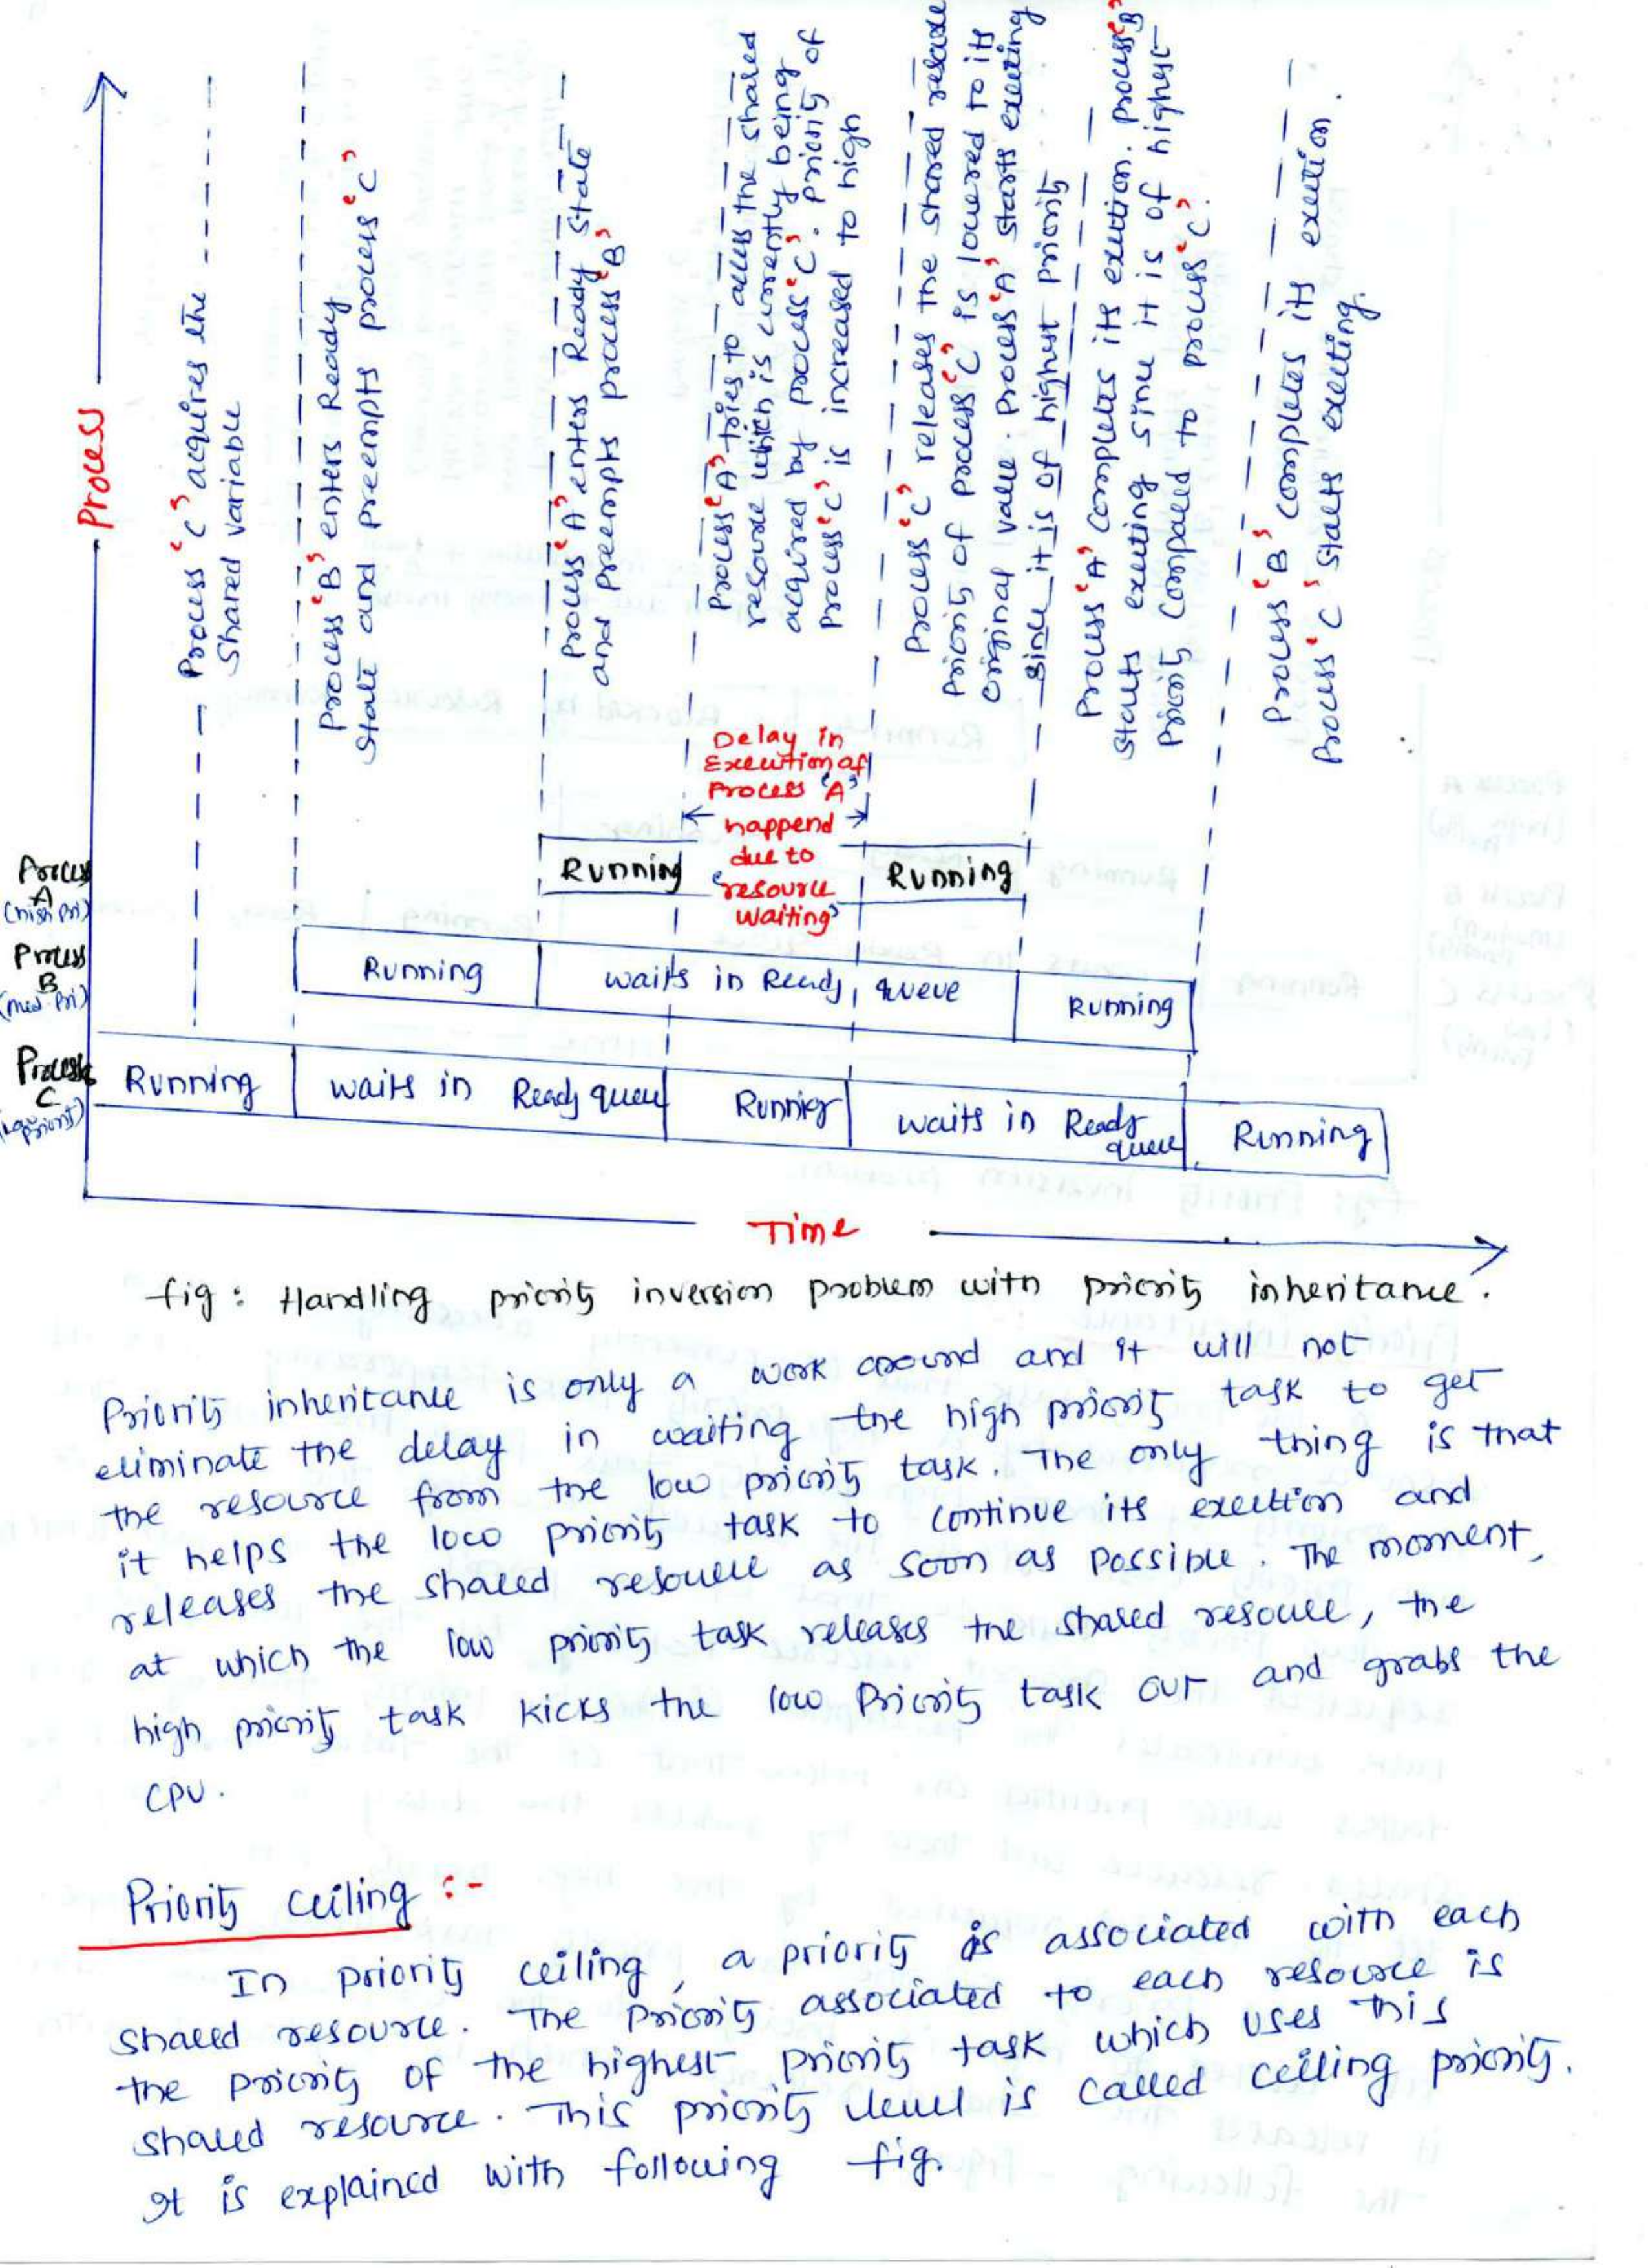 Process
Process 'C' acquires the
Shared variable
Process 'B' enters Ready
State and preempts process 'C'
Process 'A' enters Ready State
and preempts process 'B'
Process 'A' tries to access the shared
resource which is currently being
acquired by process 'C'. Priority of
Process 'C' is increased to high
Process 'C' releases the shared
Priority of process 'C' is lowered to its
original value. Process 'A' starts executing
Since it is of highest priority
Process 'A' completes its execution. Process 'B'
Starts executing since it is of highest
priority compared to process 'C'.
Process 'B' completes its execution.
Process 'C' starts executing.
Delay in
Execution of
Process 'A'
happend
due to
'resource
waiting'
Process
A
(high Pri)
Running
Running
Process
B
(med Pri)
Running
waits in Ready queue
Running
Process
C
(Low priority)
Running
waits in Ready queue
Running
waits in Ready
queue
Running
Time
fig : Handling priority inversion problem with priority inheritance.
Priority inheritance is only a work around and it will not
eliminate the delay in waiting the high priority task to get
the resource from the low priority task. The only thing is that
it helps the low priority task to continue its execution and
releases the shared resource as soon as possible. The moment,
at which the low priority task releases the shared resource, the
high priority task kicks the low priority task out and grabs the
CPU.
Priority ceiling :-
In priority ceiling, a priority is associated with each
shared resource. The priority associated to each resource is
the priority of the highest priority task which uses this
shared resource. This priority level is called ceiling priority.
It is explained with following fig.